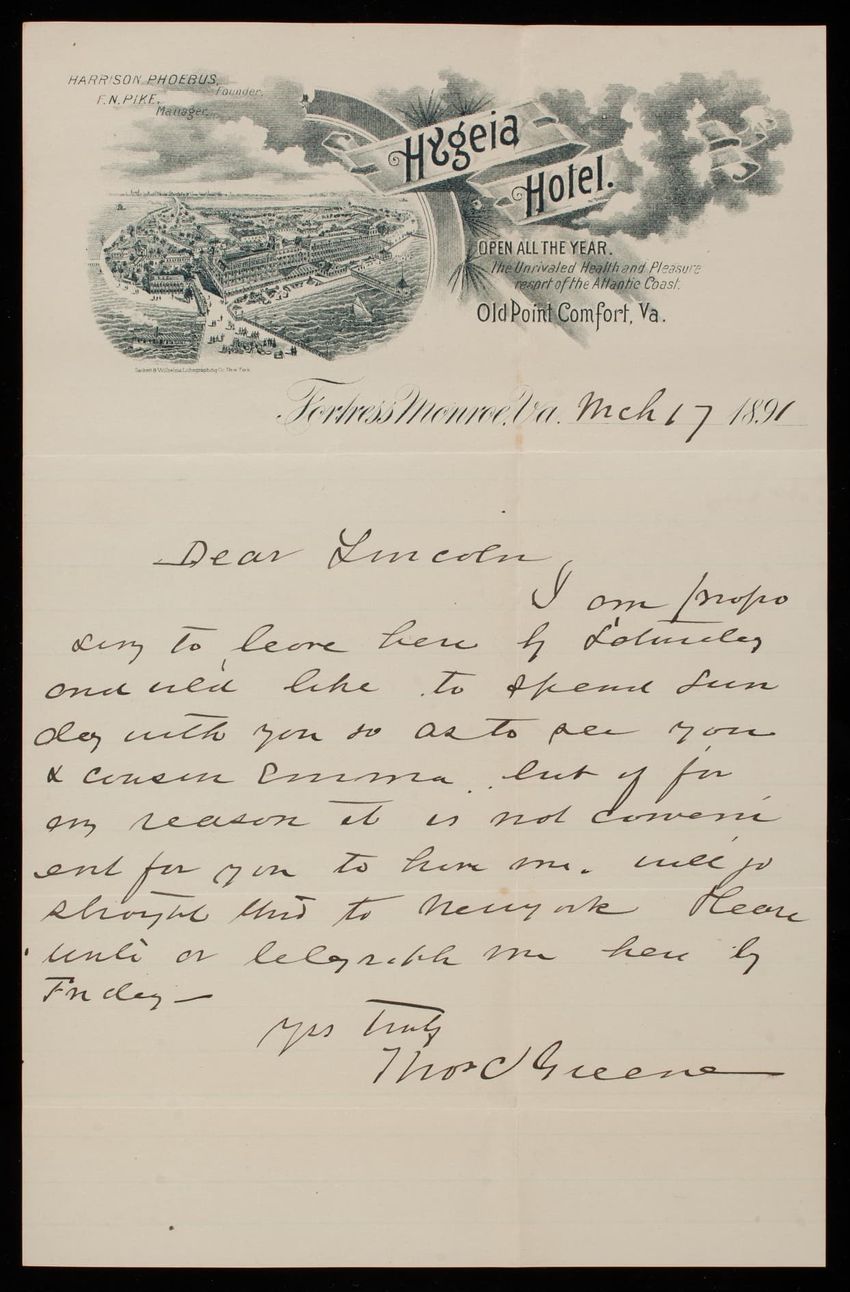 HARRISON PHOEBUS,
Founder.
F. N. PIKE,
Manager.
Hygeia
Hotel.
OPEN ALL THE YEAR.
The Unrivaled Health and Pleasure
resort of the Atlantic Coast.
Old Point Comfort, Va.
Sackett & Wilhelms Lithographing Co. New York
Fortress Monroe, Va. Mch 17 1891
Dear Lincoln,
I am propo
sing to leave here by Saturday
and would like to spend Sun
day with you so as to see you
& cousin Emma. but if for
any reason it is not conveni
ent for you to have me. will go
straight thro to New york Please
write or telegraph me here by
Friday —
yrs truly
Thos C Greene